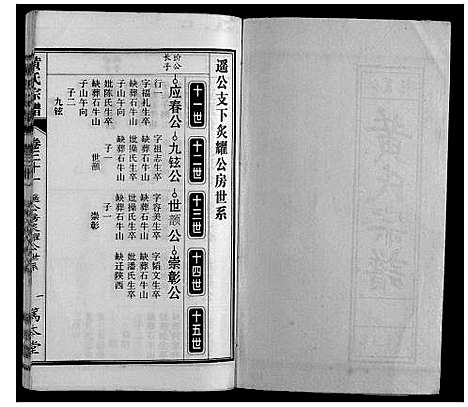 遥公支下炙耀公房世系
十一世
十二世
十三世
十四世
十五世
公
长子
应春公
九铉公
世颢公
崇彰公
行一
字福礼生卒
缺葬石牛山
子山午向
妣陈氏生卒
缺葬石牛山
子山午向
子二
九铉
字祖志生卒
缺葬石牛山
妣操氏生卒
缺葬石牛山
子一
世颢
字容美生卒
缺葬石牛山
妣操氏生卒
缺葬石牛山
子一
崇彰
字韬文生卒
缺葬石牛山
妣潘氏生卒
缺迁陕西
黄氏宗谱
卷三十一
公房炙耀公世系
一
万本堂